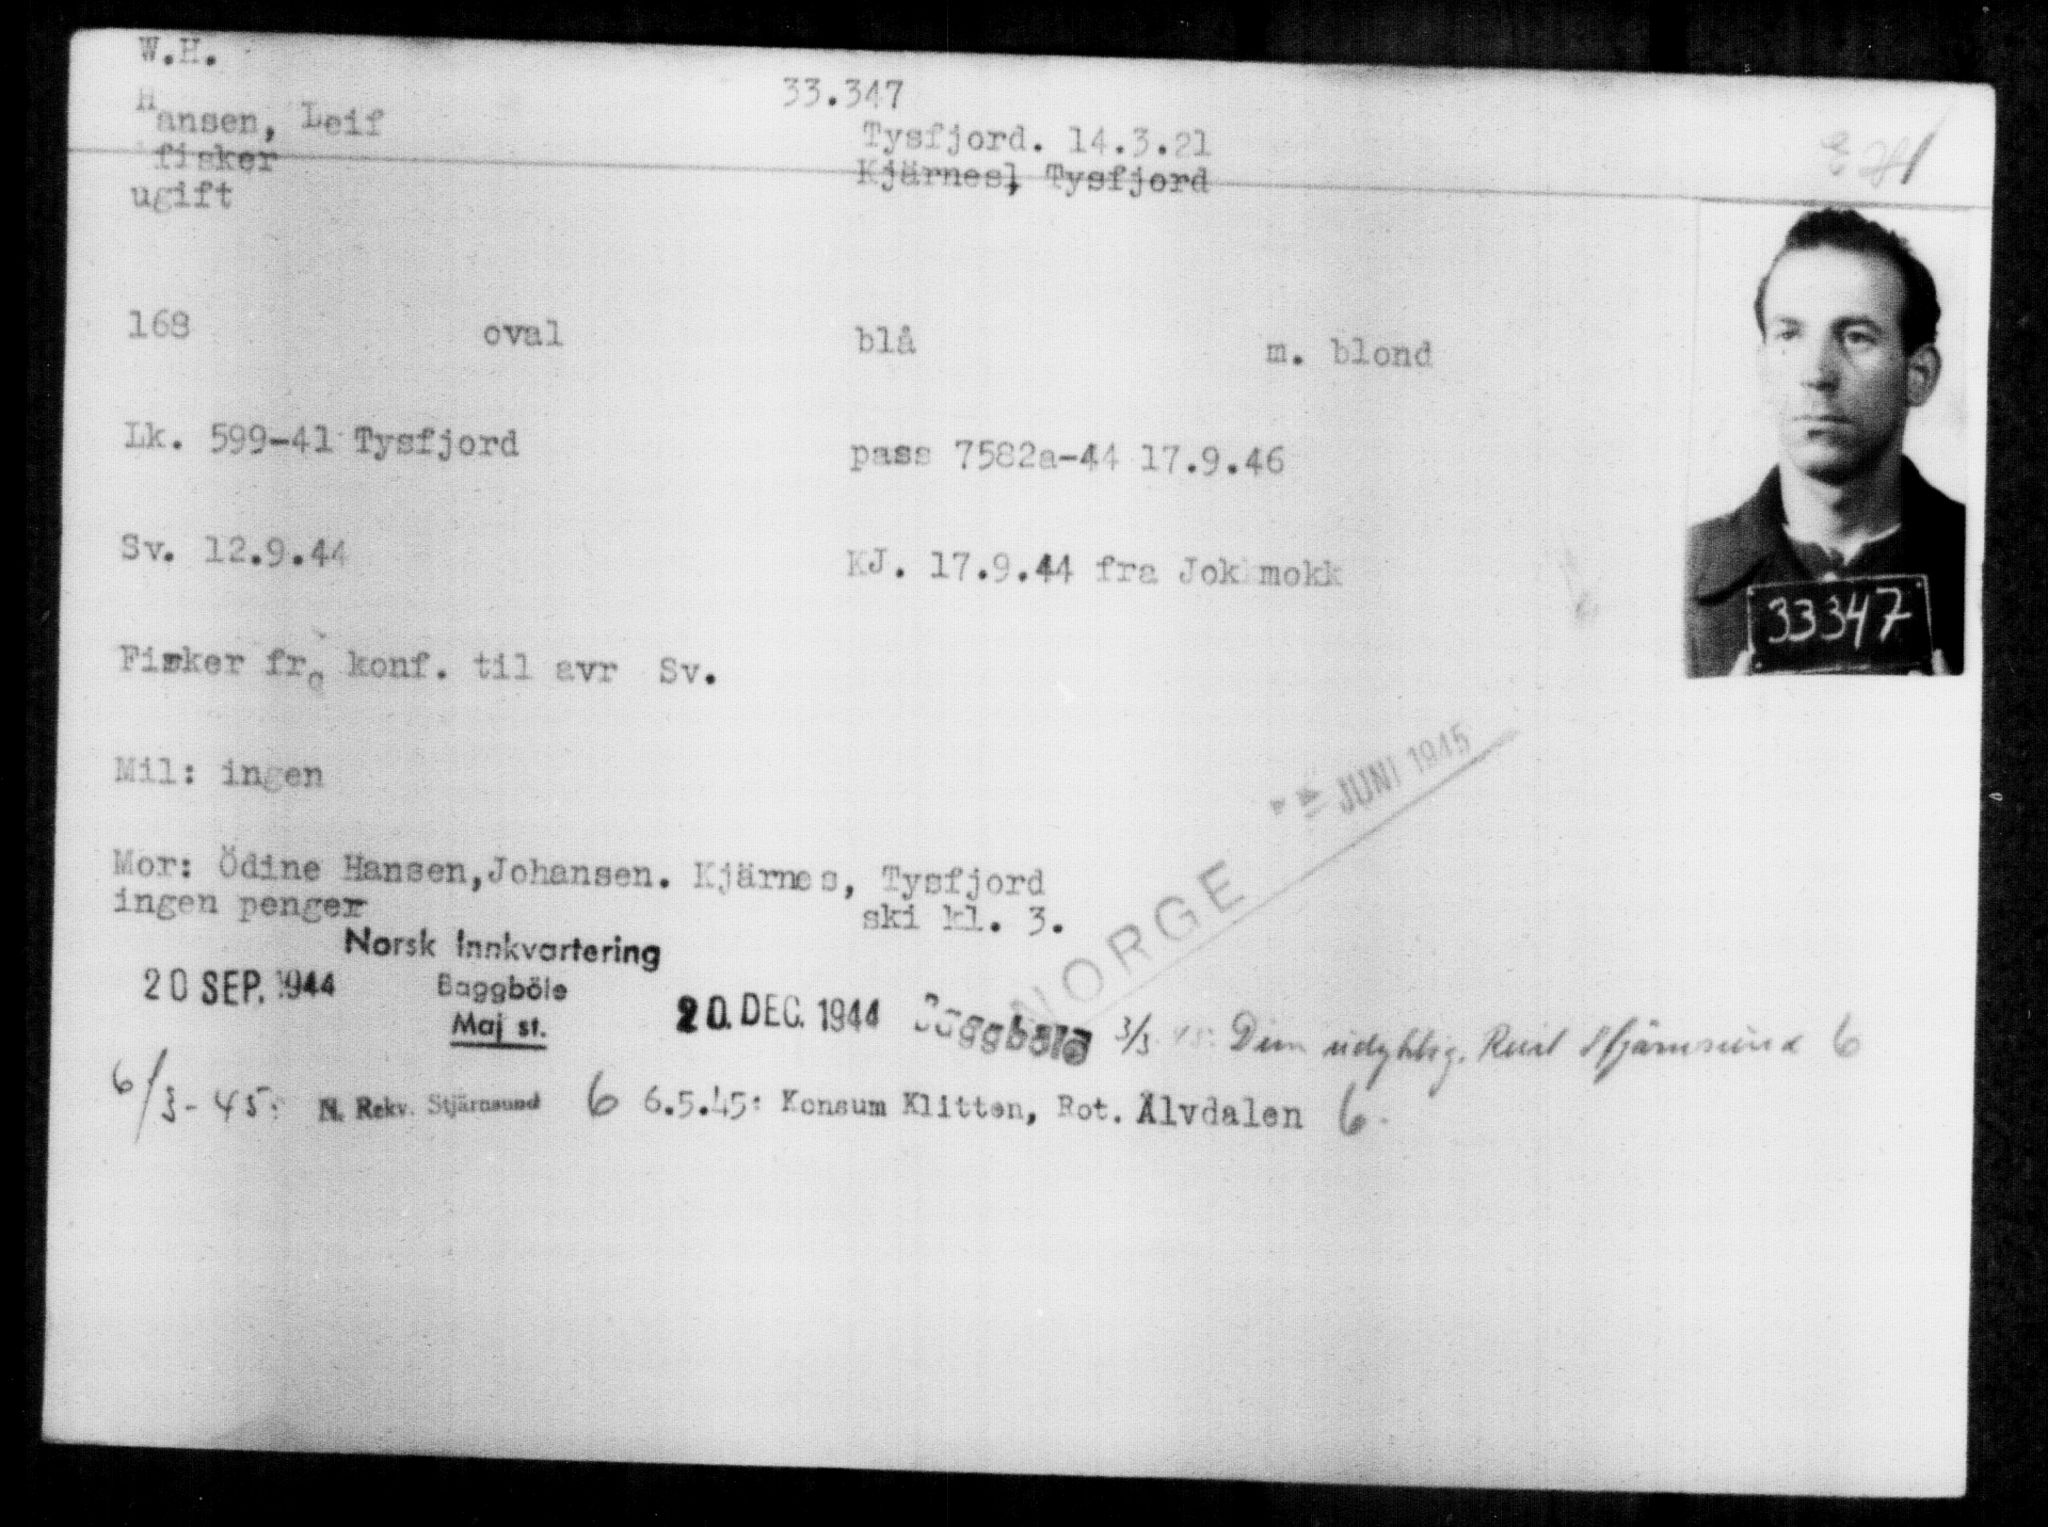 W.H.
33.347
Hansen, Leif
Tysfjord. 14.3.21
fisker
Kjärnesl, Tysfjord
ugift
168 oval blå m. blond
Lk. 599-41 Tysfjord pass 7582a-44 17.9.46
Sv. 12.9.44 KJ. 17.9.44 fra Jokkmokk
33347
Fisker fra konf. til avr Sv.
JUNI 1945
Mil: ingen
Mor: Ödine Hansen, Johansen. Kjärnes, Tysfjord
ingen penger ski kl. 3.
NORGE
Norsk Innkvartering
20 SEP. 1944 Baggböle 20. DEC. 1944 Baggböle 3/3 45: Dim udyktig. Stjärnsund 6
Maj st.
6/3-45: N. Rekv. Stjärnsund 6 6.5.45: Konsum Klitten, Rot. Älvdalen 6.